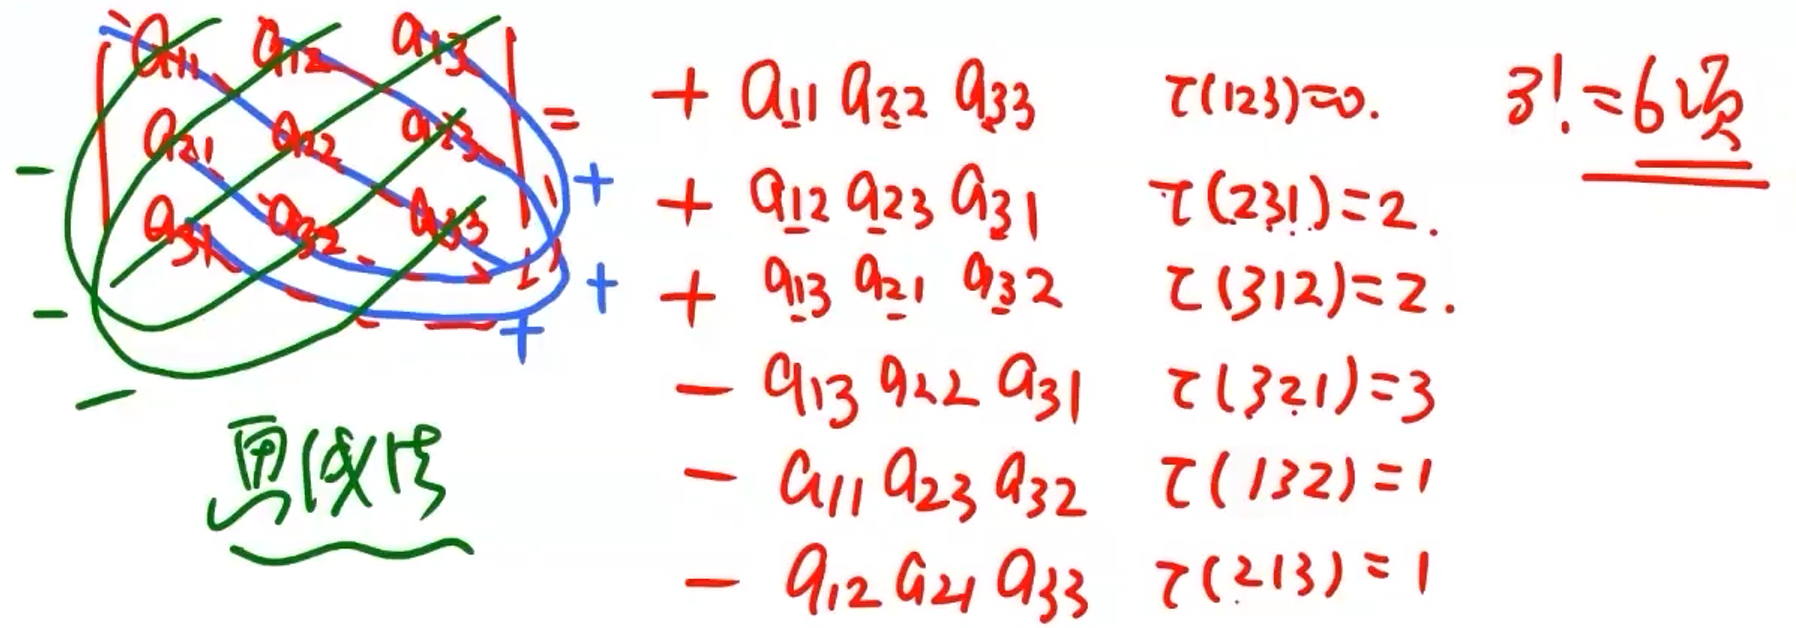 a11 a12 a13
a21 a22 a23 =
a31 a32 a33
+ a11 a22 a33 τ(123)=0. 3!=6项
+ a12 a23 a31 τ(231)=2.
+ a13 a21 a32 τ(312)=2.
- a13 a22 a31 τ(321)=3
- a11 a23 a32 τ(132)=1
- a12 a21 a33 τ(213)=1
- + 
- +
- +
画线法